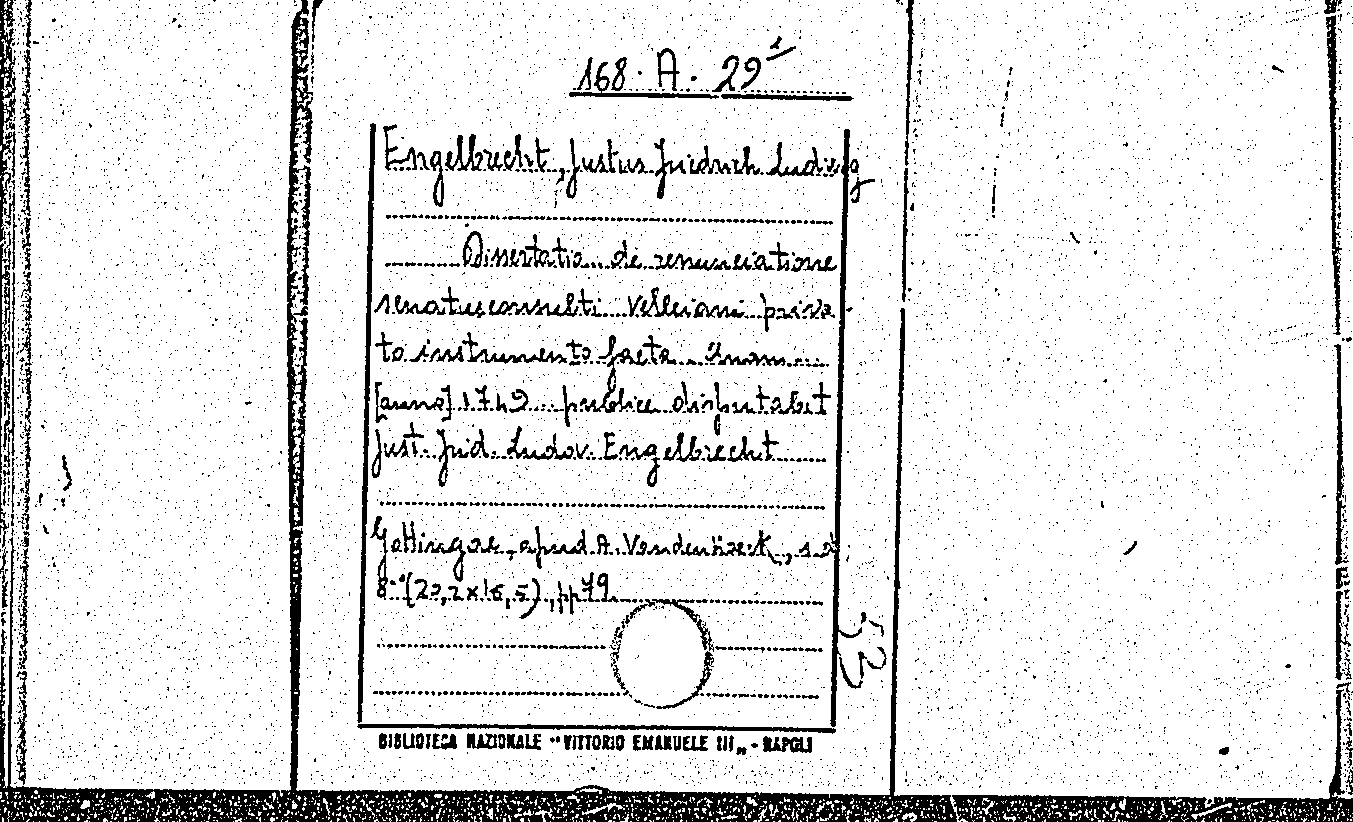 168. A. 29¹
Engelbrecht, Justus Friedrich Ludwig
Dissertatio de renunciatione
senatusconsulti Velleiani priva
to instrumento facta
[anno] 1749 publice disputabit
Just. Frid. Ludov. Engelbrecht
Gottingae, apud A. Vandenhoeck,
8° (20,2x16,5), pp 79
53
BIBLIOTECA NAZIONALE "VITTORIO EMANUELE III„ - NAPOLI